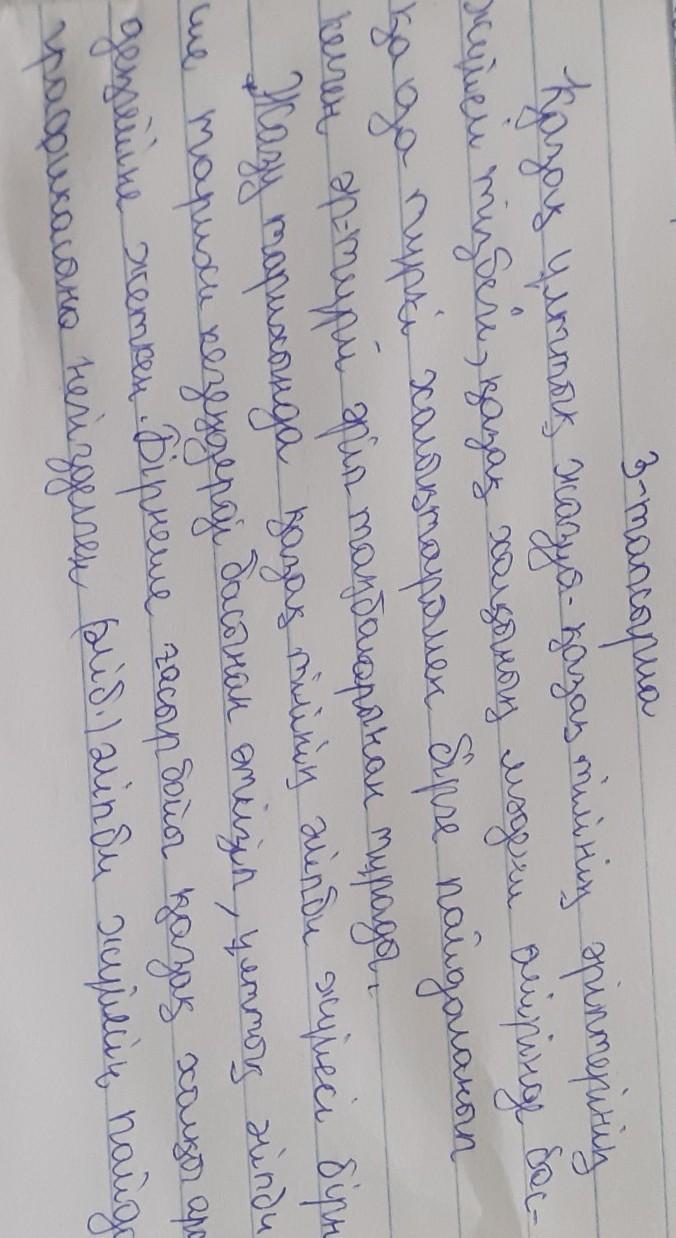 3-тапсырма
Қазақ ұлттық жазуы-қазақ тілінің әріптерінің
жүйелі тізбегі, қазақ халқының мәдени өмірінде бас-
қа да түркі халықтарымен бірге пайдаланып
келген әр-түрлі әріп таңбаларынан тұрады.
Жазу тарихында қазақ тілінің әліпби жүйесі бірн
ше тарихи кезеңдерді басынан өткізіп, ұлттық әліпби
деңгейіне жеткен. Бірнеше ғасыр бойы қазақ халқы ара
графикасына негізделген (әліб.) әліпби жүйесін пайда